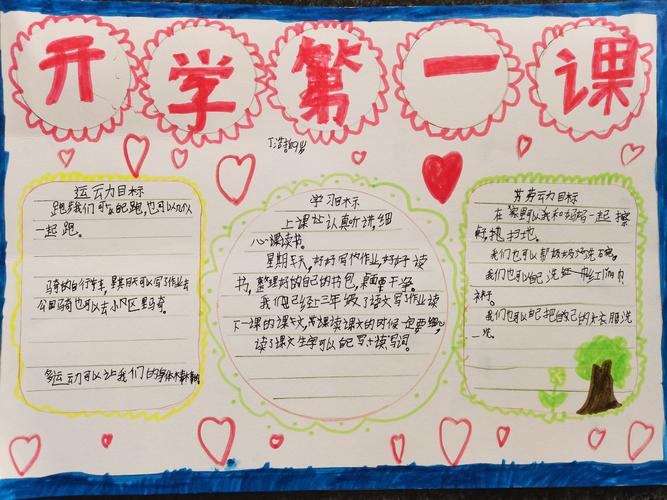 开学第一课
丁浩哲 9岁
运云力目标
跑步我们可以跑跑,也可以以人
一起跑。
骑的自行车,星期天可以写了作业去
公园骑也可以去小区里骑。
多运云力可以让我们的身体
学习目标
上课让认真听讲,细
心课读书。
星期天,好好写作业,好好读
书,整理好的自己的书包,桌面要干净。
我们已经上三年级了读文写了作业读
下一课的课文,读课文的时候一定要细心
读了课文生字可以写读写词。
劳劳云力目标
在家里可以我和妈妈一起擦
桌,扫地。
我们也可以帮妈妈洗碗。
我们也可以洗红巾
袜子。
我们也可以把自己的衣服洗
一洗。